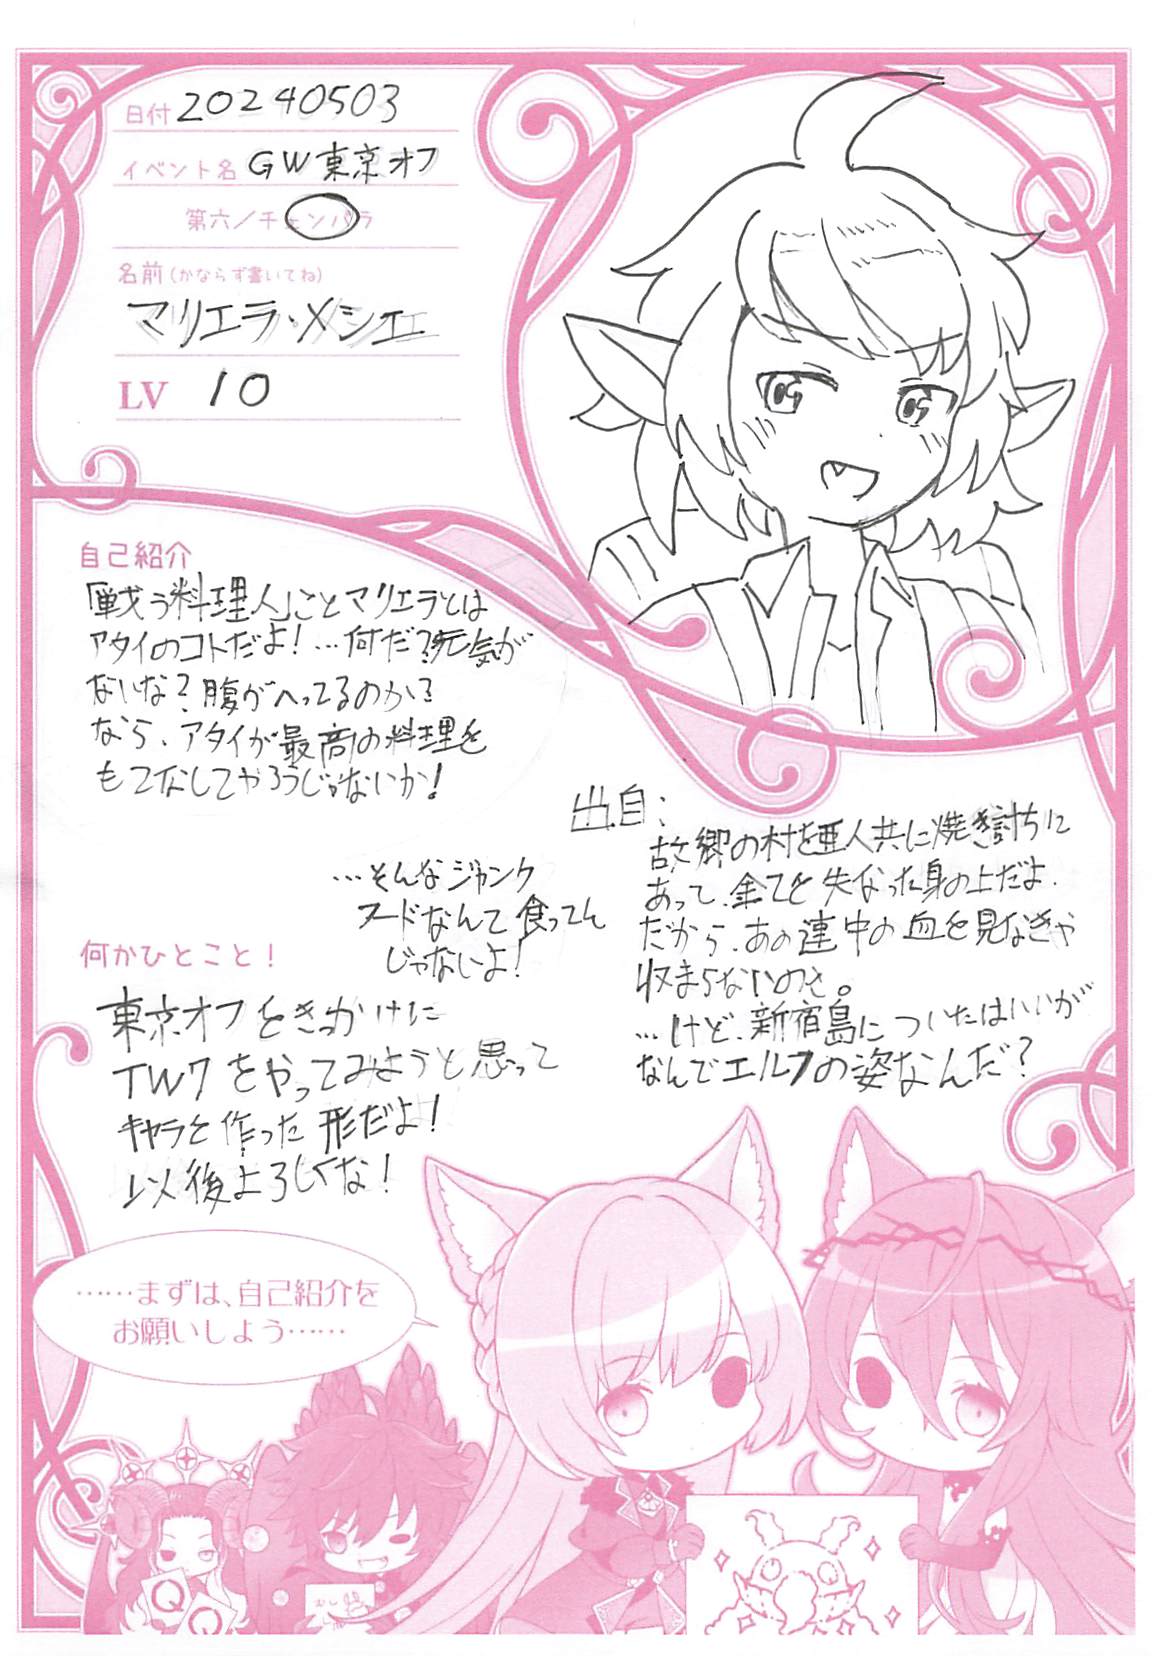 日付 20240503
イベント名 GW東京オフ
第六/チェンパラ
名前(かならず書いてね)
マリエラ・メシエ
LV 10
自己紹介
「戦う料理人」ことマリエラとは
アタイのコトだよ!…何だ?元気が
ないな?腹がへってるのか?
なら、アタイが最高の料理を
もてなしてやろうじゃないか!
…そんなジャンク
フードなんて食ってん
じゃないよ!
出自:
故郷の村を亜人共に焼き討ちに
あって、全てを失なった身の上だよ.
だから、あの連中の血を見なきゃ
収まらないのさ。
…けど、新宿島についたはいいが
なんでエルフの姿なんだ?
何かひとこと!
東京オフをきっかけに
TW7をやってみようと思って
キャラを作った形だよ!
以後よろしくな!
……まずは、自己紹介を
お願いしよう……
Q
Q